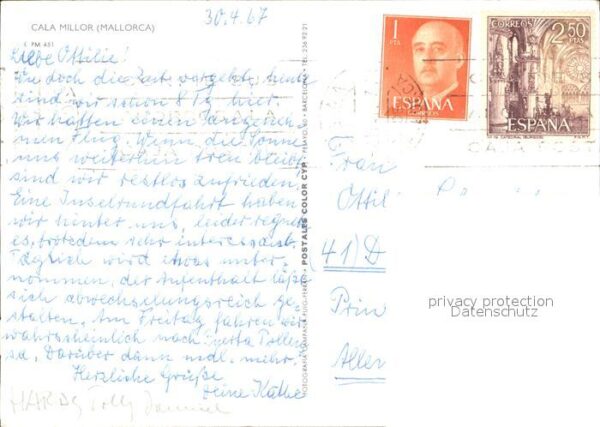 CALA MILLOR (MALLORCA)
30.4.67
PM 451
Liebe Ottilie!
Wie doch die Zeit vergeht, heute
sind wir schon 8 Tg. hier.
Wir hatten einen angeneh-
men Flug. Wenn die Sonne
uns weiterhin treu bleibt
sind wir restlos zufrieden.
Eine Inselrundfahrt haben
wir hinter uns, leider regnete
es, trotzdem sehr interessant.
Täglich wird etwas unter-
nommen, der Aufenthalt läßt
sich abwechselungsreich ge-
stalten. Am Freitag fahren wir
wahrscheinlich nach Puerta Pollen-
sa. Darüber dann mdl. mehr.
Herzliche Grüße
Deine Käthe
POSTALES COLOR CYP
BARCELONA - TEL. 236 92 21
1
PTA
ESPAÑA
CORREOS
CORREOS 2,50
PTAS
ESPAÑA
Frau
Ottil
(41) D
Prin
Aller
privacy protection
Datenschutz